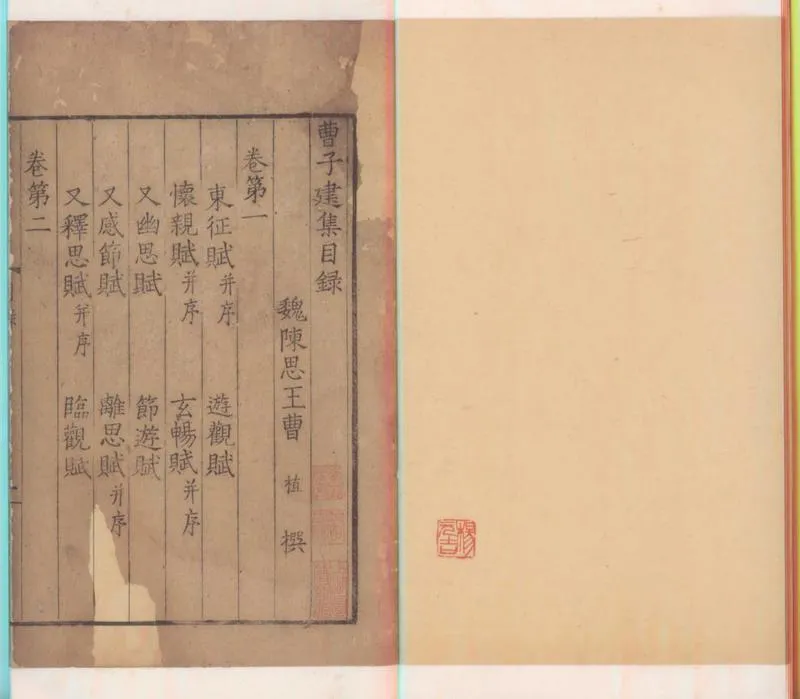 曹子建集目録
魏陳思王曹植撰
卷第一
東征賦并序 遊觀賦
懷親賦并序 玄暢賦并序
又幽思賦 節遊賦
又感節賦 離思賦并序
又釋思賦并序 臨觀賦
卷第二